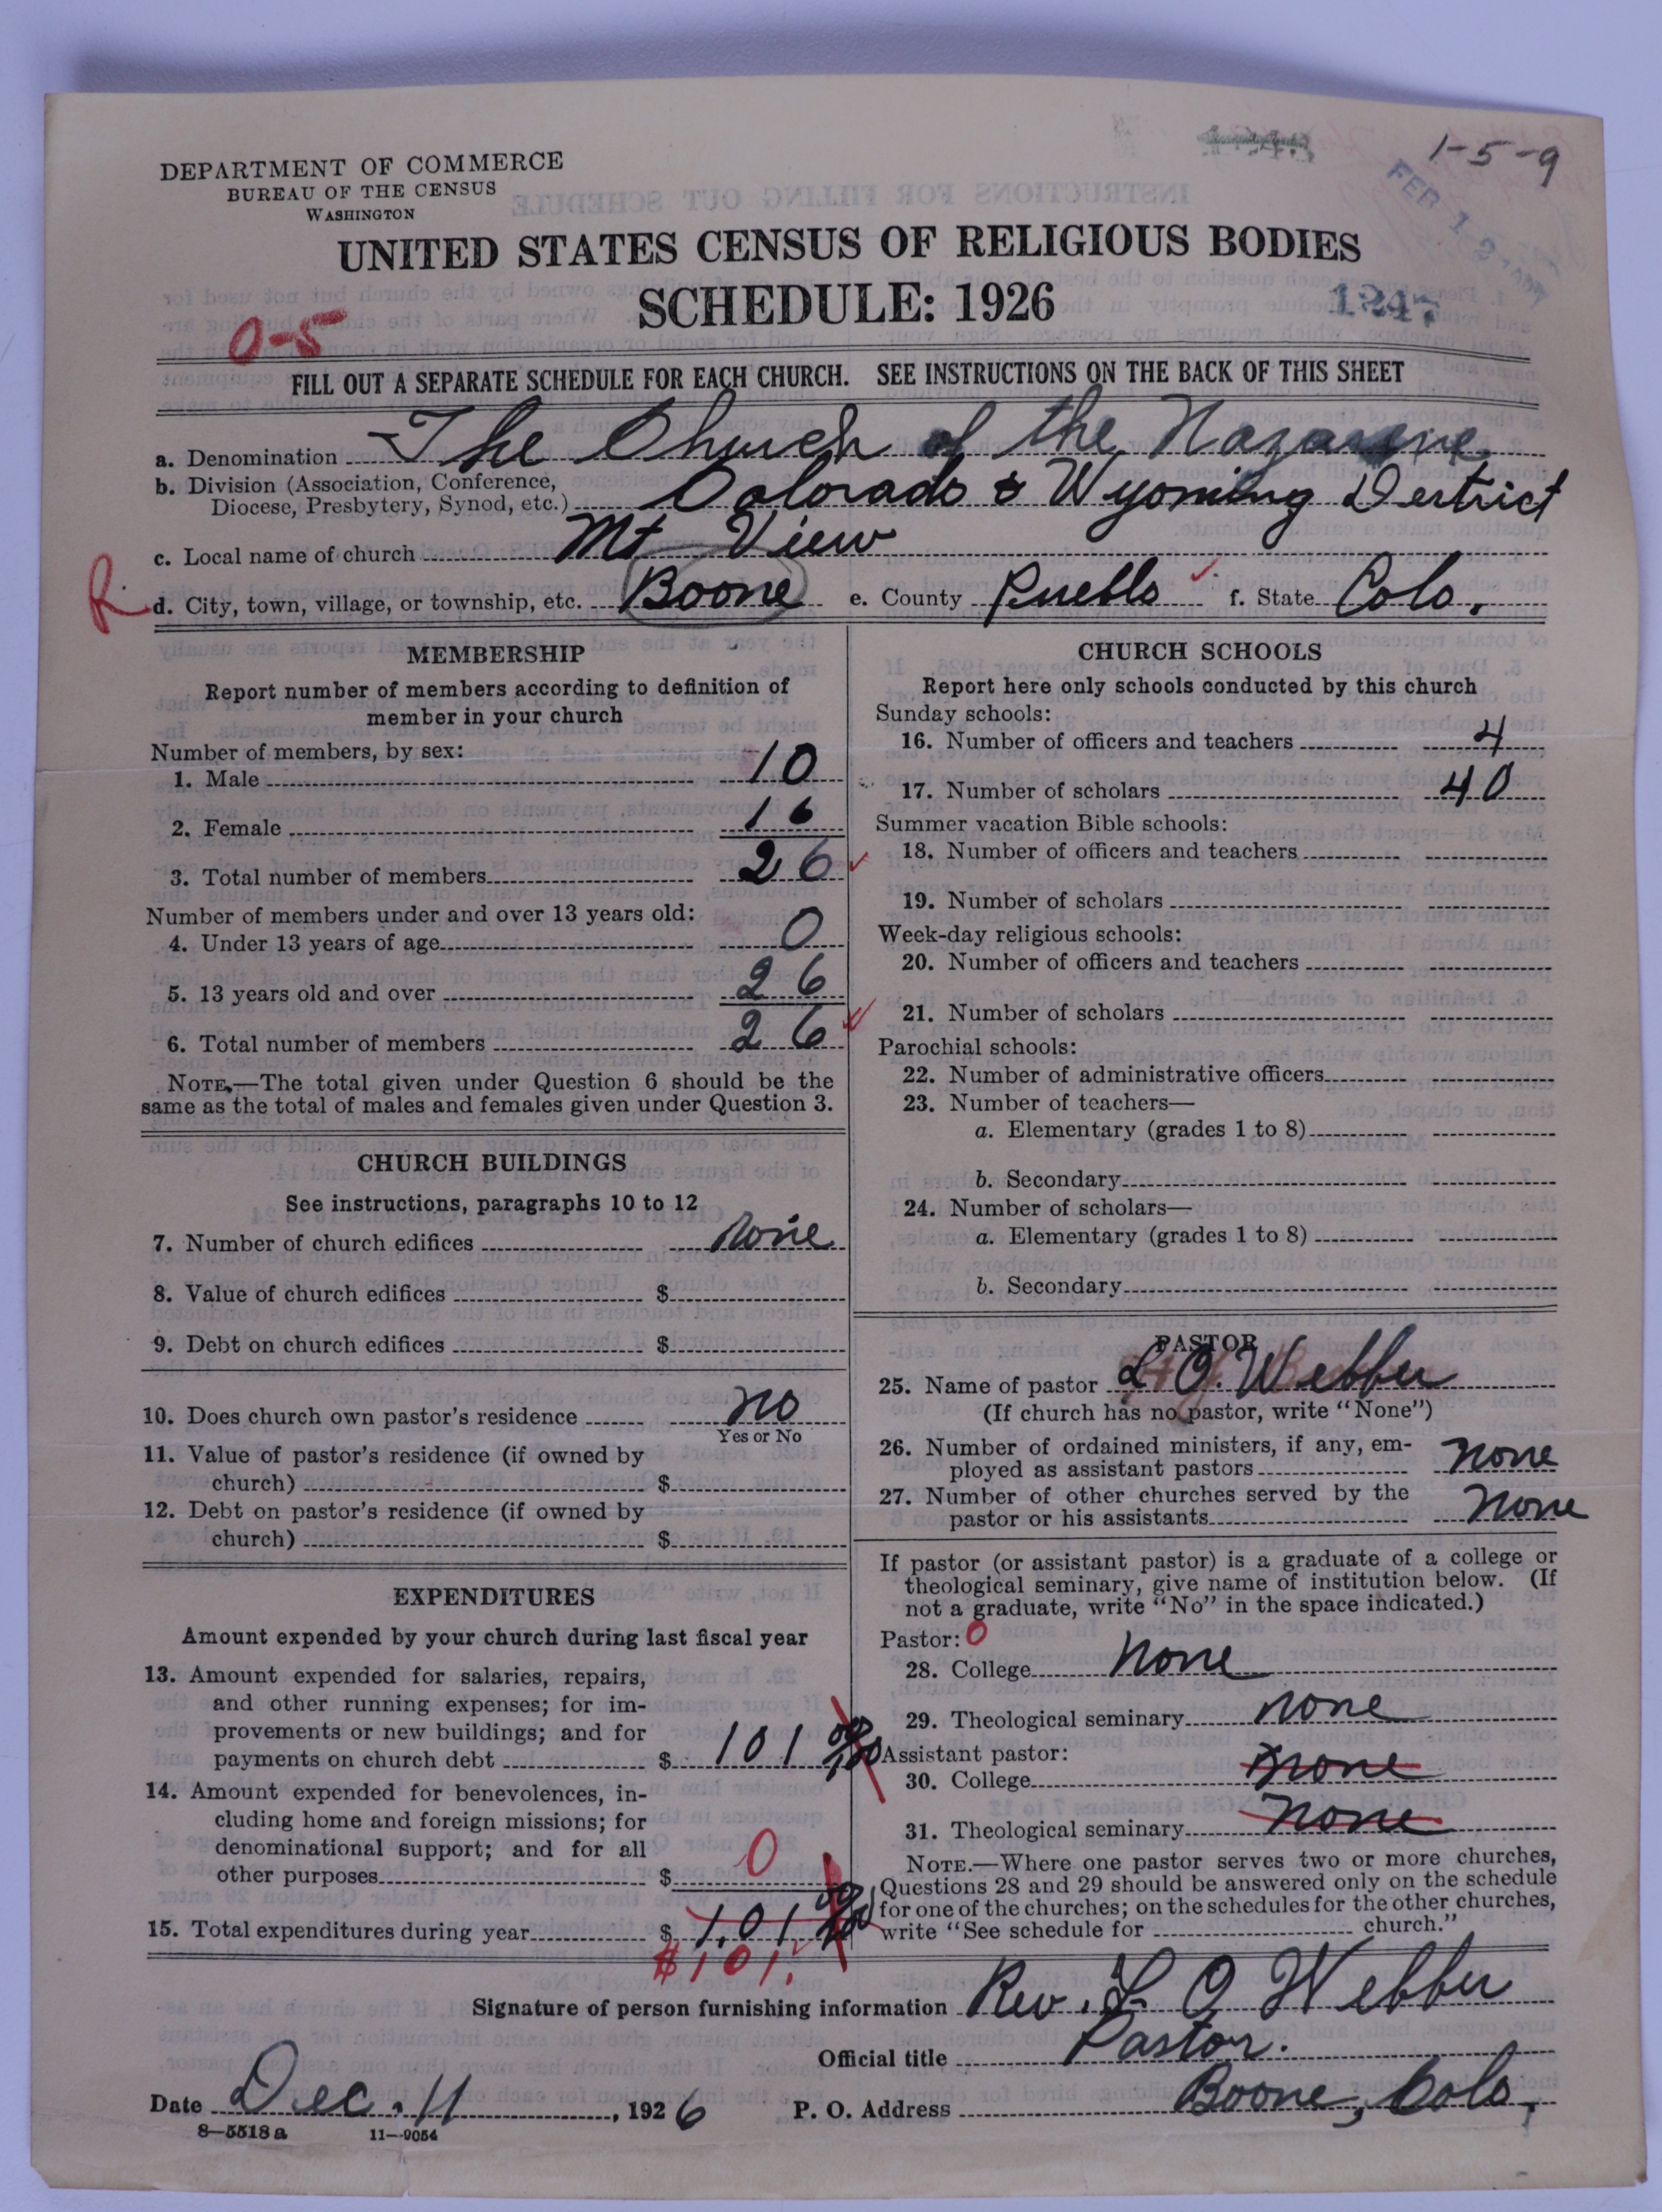 DEPARTMENT OF COMMERCE
BUREAU OF THE CENSUS
WASHINGTON
1-5-9
UNITED STATES CENSUS OF RELIGIOUS BODIES
SCHEDULE: 1926
0-5
FILL OUT A SEPARATE SCHEDULE FOR EACH CHURCH. SEE INSTRUCTIONS ON THE BACK OF THIS SHEET
a. Denomination The Church of the Nazarene
b. Division (Association, Conference,
Diocese, Presbytery, Synod, etc.) Colorado & Wyoming Destrict
c. Local name of church Mt View
R. d. City, town, village, or township, etc. Boone e. County Pueblo f. State Colo.
MEMBERSHIP
Report number of members according to definition of
member in your church
Number of members, by sex:
1. Male 10
2. Female 16
3. Total number of members 26
Number of members under and over 13 years old:
4. Under 13 years of age 0
5. 13 years old and over 26
6. Total number of members 26
NOTE.—The total given under Question 6 should be the
same as the total of males and females given under Question 3.
CHURCH BUILDINGS
See instructions, paragraphs 10 to 12
7. Number of church edifices none
8. Value of church edifices $
9. Debt on church edifices $
10. Does church own pastor's residence no
Yes or No
11. Value of pastor's residence (if owned by
church) $
12. Debt on pastor's residence (if owned by
church) $
EXPENDITURES
Amount expended by your church during last fiscal year
13. Amount expended for salaries, repairs,
and other running expenses; for im-
provements or new buildings; and for
payments on church debt $ 101 00/100
14. Amount expended for benevolences, in-
cluding home and foreign missions; for
denominational support; and for all
other purposes $ 0
15. Total expenditures during year $ 101 00/100
$101.
CHURCH SCHOOLS
Report here only schools conducted by this church
Sunday schools:
16. Number of officers and teachers 4
17. Number of scholars 40
Summer vacation Bible schools:
18. Number of officers and teachers
19. Number of scholars
Week-day religious schools:
20. Number of officers and teachers
21. Number of scholars
Parochial schools:
22. Number of administrative officers
23. Number of teachers—
a. Elementary (grades 1 to 8)
b. Secondary
24. Number of scholars—
a. Elementary (grades 1 to 8)
b. Secondary
PASTOR
25. Name of pastor L O. Webber
(If church has no pastor, write "None")
26. Number of ordained ministers, if any, em-
ployed as assistant pastors none
27. Number of other churches served by the
pastor or his assistants none
If pastor (or assistant pastor) is a graduate of a college or
theological seminary, give name of institution below. (If
not a graduate, write "No" in the space indicated.)
Pastor: 0
28. College none
29. Theological seminary none
Assistant pastor:
30. College none
31. Theological seminary none
NOTE.—Where one pastor serves two or more churches,
Questions 28 and 29 should be answered only on the schedule
for one of the churches; on the schedules for the other churches,
write "See schedule for church."
Signature of person furnishing information Rev. L O Webber
Official title Pastor.
Date Dec. 11, 1926 P. O. Address Boone, Colo.
8—5518 a 11—9054